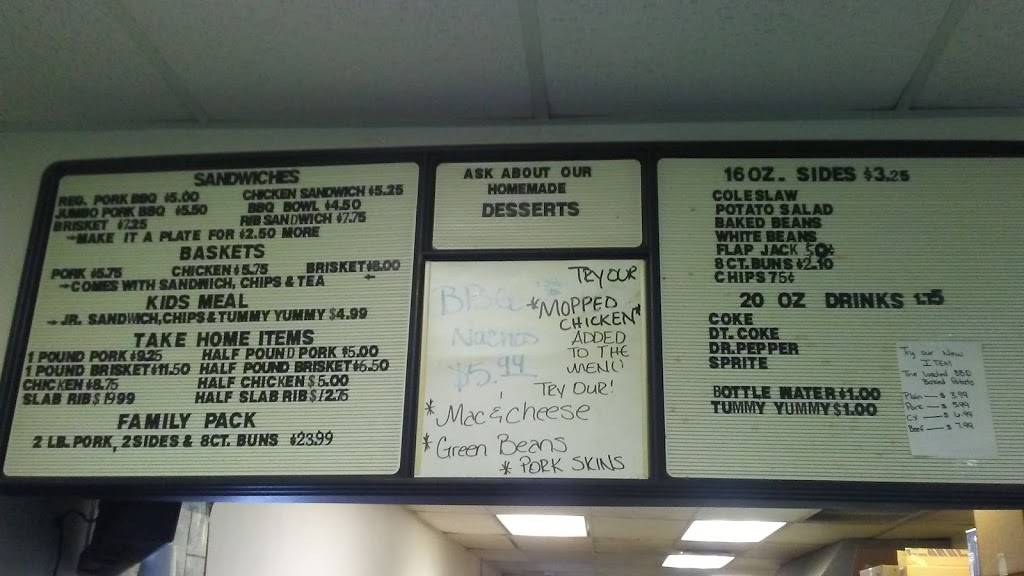 SANDWICHES
REG. PORK BBQ $5.00 CHICKEN SANDWICH $5.25
JUMBO PORK BBQ $5.50 BBQ BOWL $4.50
BRISKET $7.25 RIB SANDWICH $7.75
MAKE IT A PLATE FOR $2.50 MORE
BASKETS
PORK $5.75 CHICKEN $5.75 BRISKET $8.00
COMES WITH SANDWICH, CHIPS & TEA
KIDS MEAL
JR. SANDWICH, CHIPS & TUMMY YUMMY $4.99
TAKE HOME ITEMS
1 POUND PORK $9.25 HALF POUND PORK $5.00
1 POUND BRISKET $11.50 HALF POUND BRISKET $6.50
CHICKEN $8.75 HALF CHICKEN $5.00
SLAB RIB $19.99 HALF SLAB RIB $12.75
FAMILY PACK
2 LB. PORK, 2 SIDES & 8CT. BUNS $23.99
ASK ABOUT OUR
HOMEMADE
DESSERTS
BBQ
Nachos
$5.99
TRY OUR
*MOPPED
CHICKEN*
ADDED
TO THE
MENU
TRY OUR!
* Mac & cheese
* Green Beans
* PORK SKINS
16 OZ. SIDES $3.25
COLESLAW
POTATO SALAD
BAKED BEANS
WHITE BEANS
FLAP JACK 50¢
8 CT. BUNS $2.10
CHIPS 75¢
20 OZ DRINKS 1.75
COKE
DT. COKE
DR. PEPPER
SPRITE
BOTTLE WATER $1.00
TUMMY YUMMY $1.00
Try our New
ITEM!
The Loaded BBQ
Baked Potato
Plain — $3.99
Pork — $5.99
C — $6.99
Beef — $7.99